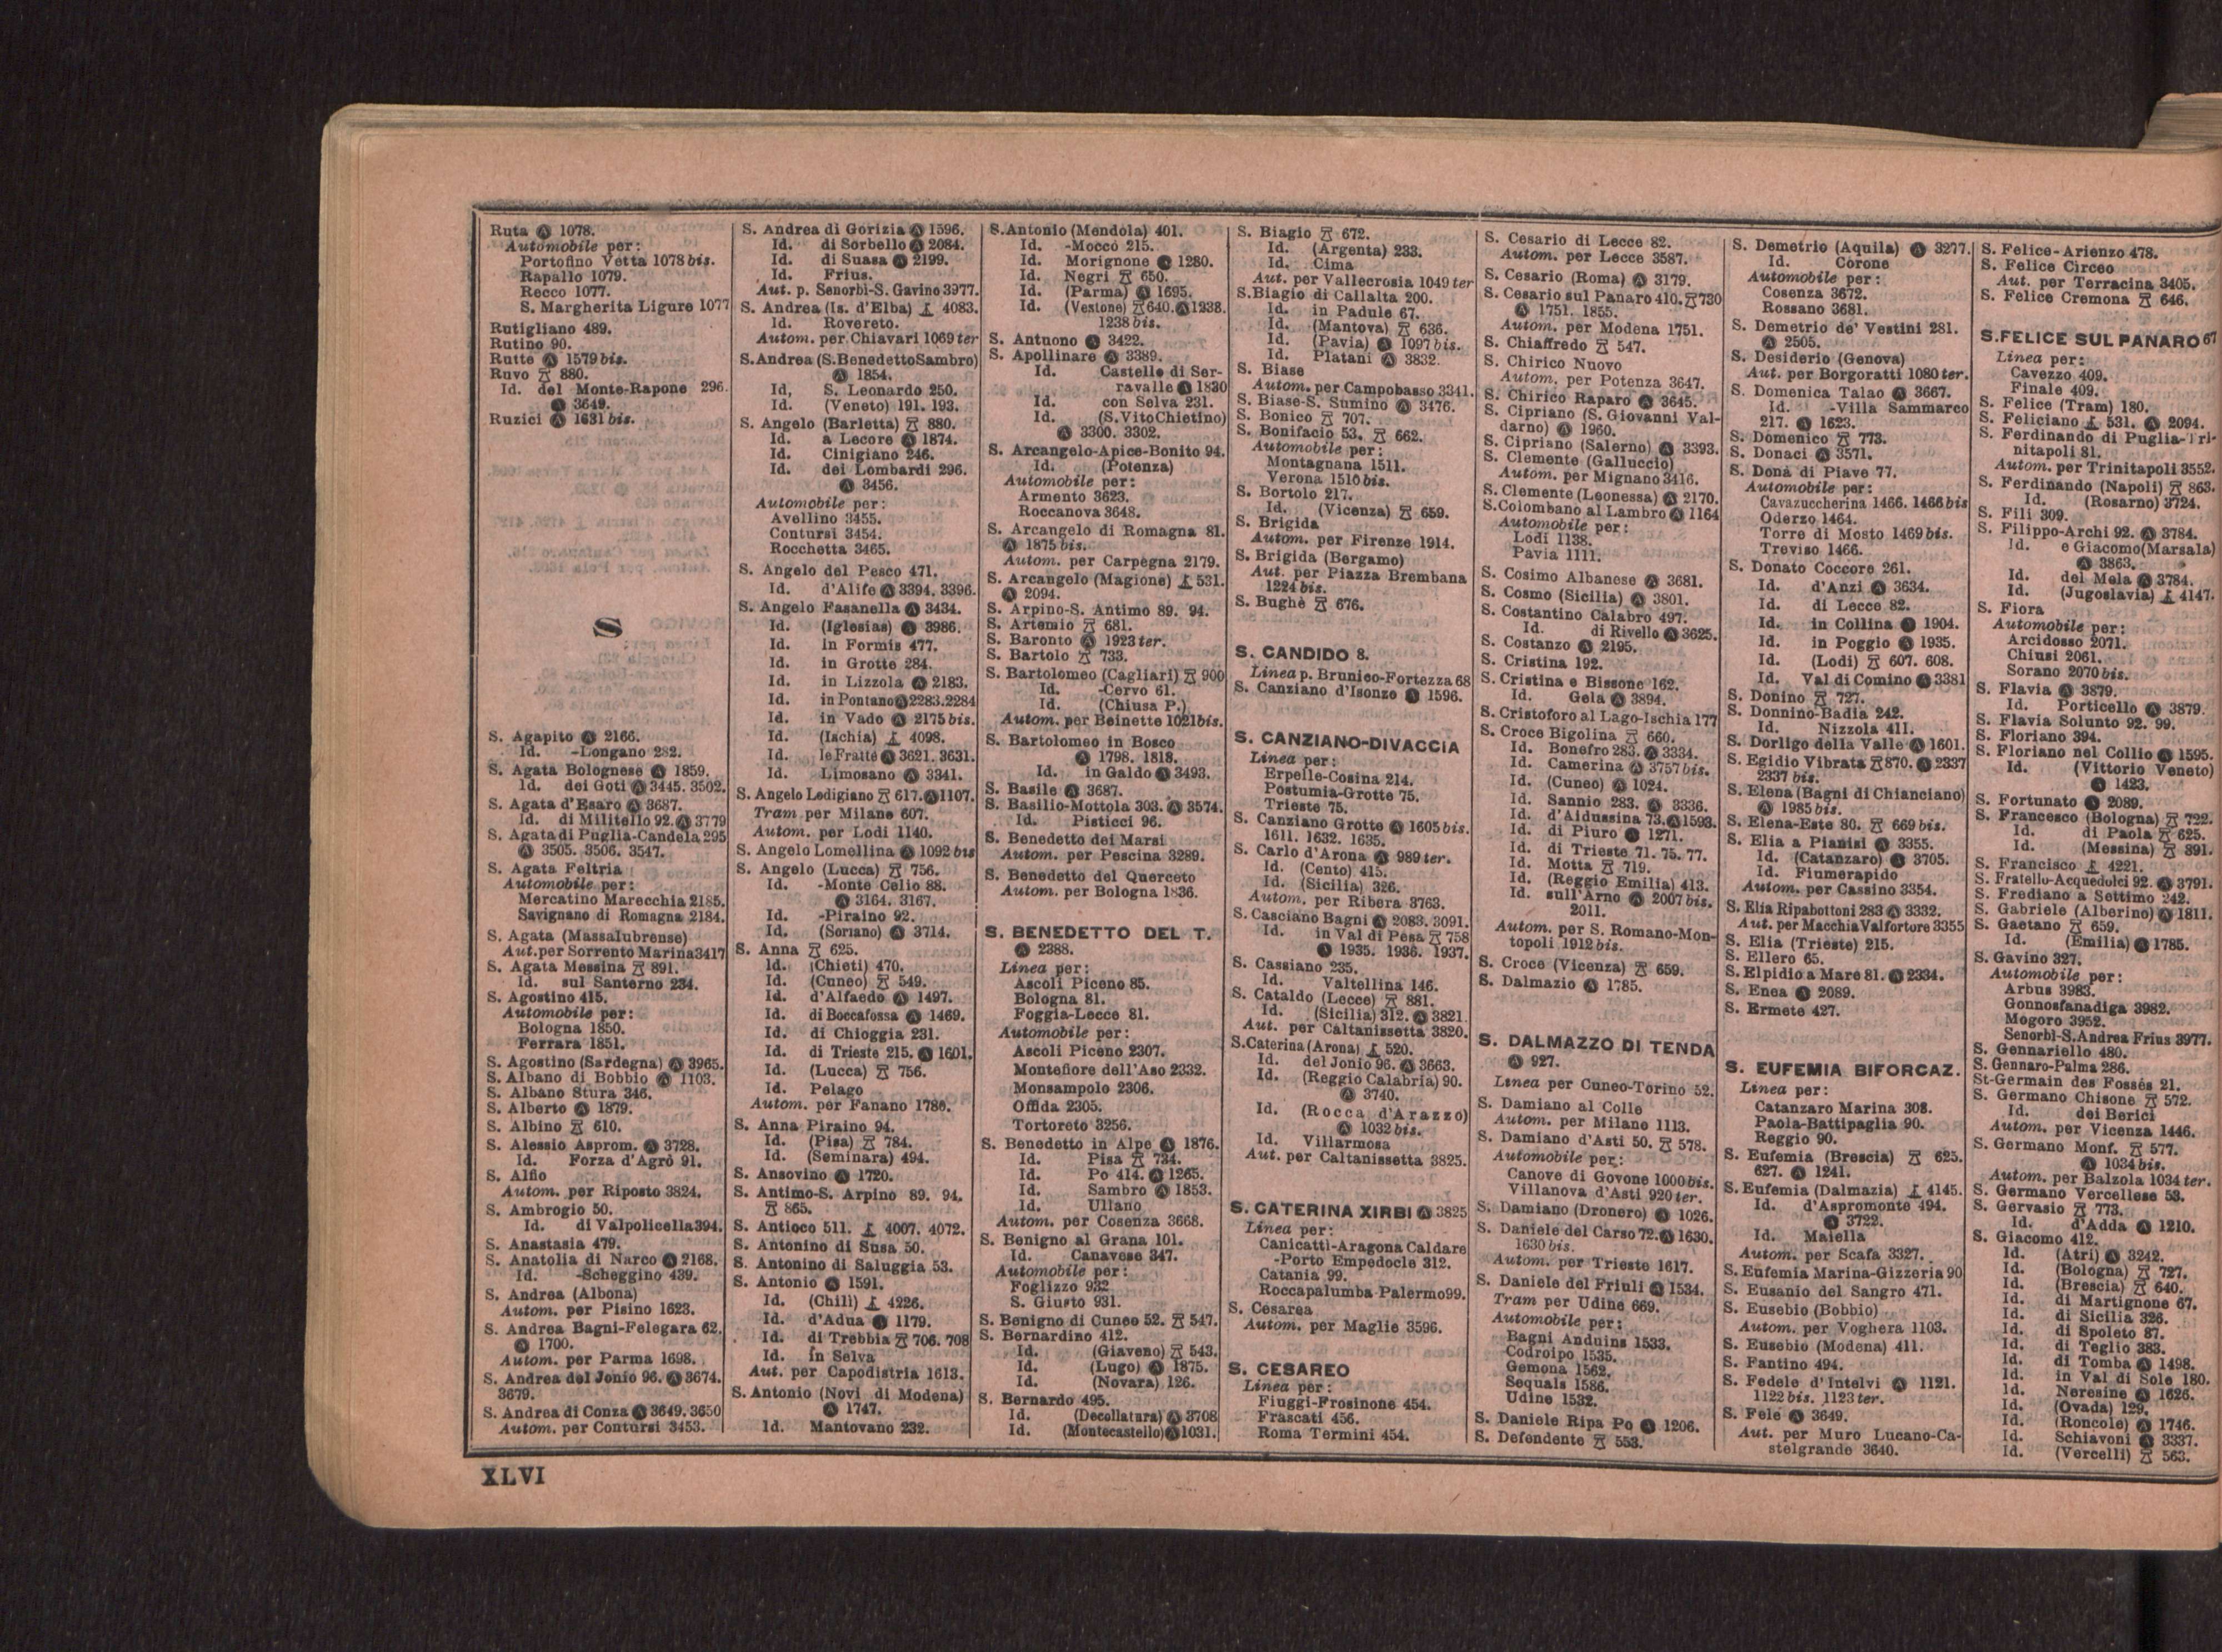 Ruta Ⓐ 1078.
Automobile per:
Portofino Vetta 1078 bis.
Rapallo 1079.
Recco 1077.
S. Margherita Ligure 1077
Rutigliano 489.
Rutino 90.
Rutte Ⓐ 1579 bis.
Ruvo 880.
Id. del Monte-Rapone 296.
Ⓐ 3649.
Ruzici Ⓐ 1631 bis.
S
S. Agapito Ⓐ 2166.
Id. -Longano 282.
S. Agata Bolognese Ⓐ 1859.
Id. dei Goti Ⓐ 3445. 3502.
S. Agata d'Esaro Ⓐ 3687.
Id. di Militello 92. Ⓐ 3779
S. Agata di Puglia-Candela 295
Ⓐ 3505. 3506. 3547.
S. Agata Feltria
Automobile per:
Mercatino Marecchia 2185.
Savignano di Romagna 2184.
S. Agata (Massalubrense)
Aut. per Sorrento Marina 3417
S. Agata Messina 891.
Id. sul Santerno 234.
S. Agostino 415.
Automobile per:
Bologna 1850.
Ferrara 1851.
S. Agostino (Sardegna) Ⓐ 3965.
S. Albano di Bobbio Ⓐ 1103.
S. Albano Stura 346.
S. Alberto Ⓐ 1879.
S. Albino 610.
S. Alessio Asprom. Ⓐ 3728.
Id. Forza d'Agrò 91.
S. Alfio
Autom. per Riposto 3824.
S. Ambrogio 50.
Id. di Valpolicella 394.
S. Anastasia 479.
S. Anatolia di Narco Ⓐ 2168.
Id. -Scheggino 439.
S. Andrea (Albona)
Autom. per Pisino 1623.
S. Andrea Bagni-Felegara 62.
Ⓐ 1700.
Autom. per Parma 1698.
S. Andrea del Jonio 96. Ⓐ 3674.
3679.
S. Andrea di Conza Ⓐ 3649. 3650
Autom. per Contursi 3453.
S. Andrea di Gorizia Ⓐ 1596.
Id. di Sorbello Ⓐ 2084.
Id. di Suasa Ⓐ 2199.
Id. Frius.
Aut. p. Senorbì-S. Gavino 3977.
S. Andrea (Is. d'Elba) 4083.
Id. Rovereto.
Autom. per Chiavari 1069 ter
S. Andrea (S. Benedetto Sambro)
Ⓐ 1854.
Id, S. Leonardo 250.
Id. (Veneto) 191. 193.
S. Angelo (Barletta) 880.
Id. a Lecore Ⓐ 1874.
Id. Cinigiano 246.
Id. dei Lombardi 296.
Ⓐ 3456.
Automobile per:
Avellino 3455.
Contursi 3454.
Rocchetta 3465.
S. Angelo del Pesco 471.
Id. d'Alife Ⓐ 3394. 3396.
S. Angelo Fasanella Ⓐ 3434.
Id. (Iglesias) Ⓐ 3986.
Id. in Formis 477.
Id. in Grotte 284.
Id. in Lizzola Ⓐ 2183.
Id. in Pontano Ⓐ 2283. 2284
Id. in Vado Ⓐ 2175 bis.
Id. (Ischia) 4098.
Id. le Fratte Ⓐ 3621. 3631.
Id. Limosano Ⓐ 3341.
S. Angelo Lodigiano 617. Ⓐ 1107.
Tram per Milano 607.
Autom. per Lodi 1140.
S. Angelo Lomellina Ⓐ 1092 bis
S. Angelo (Lucca) 756.
Id. -Monte Celio 88.
Ⓐ 3164. 3167.
Id. -Piraino 92.
Id. (Soriano) Ⓐ 3714.
S. Anna 625.
Id. (Chieti) 470.
Id. (Cuneo) 549.
Id. d'Alfaedo Ⓐ 1497.
Id. di Boccafossa Ⓐ 1469.
Id. di Chioggia 231.
Id. di Trieste 215. Ⓐ 1601.
Id. (Lucca) 756.
Id. Pelago
Autom. per Fanano 1786.
S. Anna Piraino 94.
Id. (Pisa) 784.
Id. (Seminara) 494.
S. Ansovino Ⓐ 1720.
S. Antimo-S. Arpino 89. 94.
865.
S. Antioco 511. 4007. 4072.
S. Antonino di Susa 50.
S. Antonino di Saluggia 53.
S. Antonio Ⓐ 1591.
Id. (Chili) 4226.
Id. d'Adua Ⓐ 1179.
Id. di Trebbia 706. 708
Id. in Selva
Aut. per Capodistria 1613.
S. Antonio (Novi di Modena)
Ⓐ 1747.
Id. Mantovano 232.
S. Antonio (Mendola) 401.
Id. -Mocco 215.
Id. Morignone Ⓐ 1280.
Id. Negri 650.
Id. (Parma) Ⓐ 1695.
Id. (Vestone) 640. Ⓐ 1238.
1238 bis.
S. Antuono Ⓐ 3422.
S. Apollinare Ⓐ 3389.
Id. Castello di Ser-
ravalle Ⓐ 1830
Id. con Selva 231.
Id. (S. Vito Chietino)
Ⓐ 3300. 3302.
S. Arcangelo-Apice-Bonito 94.
Id. (Potenza)
Automobile per:
Armento 3623.
Roccanova 3648.
S. Arcangelo di Romagna 81.
Ⓐ 1875 bis.
Autom. per Carpegna 2179.
S. Arcangelo (Magione) 531.
Ⓐ 2094.
S. Arpino-S. Antimo 89. 94.
S. Artemio 681.
S. Baronto Ⓐ 1923 ter.
S. Bartolo 733.
S. Bartolomeo (Cagliari) 900
Id. -Cervo 61.
Id. (Chiusa P.)
Autom. per Beinette 1021 bis.
S. Bartolomeo in Bosco
Ⓐ 1798. 1818.
Id. in Galdo Ⓐ 3493.
S. Basile Ⓐ 3687.
S. Basilio-Mottola 303. Ⓐ 3574.
Id. Pisticci 96.
S. Benedetto dei Marsi
Autom. per Pescina 3289.
S. Benedetto del Querceto
Autom. per Bologna 1836.
S. BENEDETTO DEL T.
Ⓐ 2388.
Linea per:
Ascoli Piceno 85.
Bologna 81.
Foggia-Lecce 81.
Automobile per:
Ascoli Piceno 2307.
Montefiore dell'Aso 2332.
Monsampolo 2306.
Offida 2305.
Tortoreto 3256.
S. Benedetto in Alpe Ⓐ 1876.
Id. Pisa 734.
Id. Po 414. Ⓐ 1265.
Id. Sambro Ⓐ 1853.
Id. Ullano
Autom. per Cosenza 3668.
S. Benigno al Grana 101.
Id. Canavese 347.
Automobile per:
Foglizzo 932
S. Giusto 931.
S. Benigno di Cuneo 52. 547.
S. Bernardino 412.
Id. (Giaveno) 543.
Id. (Lugo) Ⓐ 1875.
Id. (Novara) 126.
S. Bernardo 495.
Id. (Decollatura) Ⓐ 3708
Id. (Montecastello) Ⓐ 1031.
S. Biagio 672.
Id. (Argenta) 233.
Id. Cima
Aut. per Vallecrosia 1049 ter
S. Biagio di Callalta 200.
Id. in Padule 67.
Id. (Mantova) 636.
Id. (Pavia) Ⓐ 1097 bis.
Id. Platani Ⓐ 3832.
S. Biase
Autom. per Campobasso 3341.
S. Biase-S. Sumino Ⓐ 3476.
S. Bonico 707.
S. Bonifacio 53. 662.
Automobile per:
Montagnana 1511.
Verona 1510 bis.
S. Bortolo 217.
Id. (Vicenza) 659.
S. Brigida
Autom. per Firenze 1914.
S. Brigida (Bergamo)
Aut. per Piazza Brembana
1224 bis.
S. Bughè 676.
S. CANDIDO 8.
Linea p. Brunico-Fortezza 68
S. Canziano d'Isonzo Ⓐ 1596.
S. CANZIANO-DIVACCIA
Linea per:
Erpelle-Cosina 214.
Postumia-Grotte 75.
Trieste 75.
S. Canziano Grotte Ⓐ 1605 bis.
1611. 1632. 1635.
S. Carlo d'Arona Ⓐ 989 ter.
Id. (Cento) 415.
Id. (Sicilia) 326.
Autom. per Ribera 3763.
S. Casciano Bagni Ⓐ 2083. 3091.
Id. in Val di Pesa 758
Ⓐ 1935. 1936. 1937.
S. Cassiano 235.
Id. Valtellina 146.
S. Cataldo (Lecce) 881.
Id. (Sicilia) 312. Ⓐ 3821.
Aut. per Caltanissetta 3820.
S. Caterina (Arona) 520.
Id. del Jonio 96. Ⓐ 3663.
Id. (Reggio Calabria) 90.
Ⓐ 3740.
Id. (Rocca d'Arazzo)
Ⓐ 1032 bis.
Id. Villarmosa
Aut. per Caltanissetta 3825.
S. CATERINA XIRBI Ⓐ 3825
Linea per:
Canicatti-Aragona Caldare
-Porto Empedocle 312.
Catania 99.
Roccapalumba-Palermo 99.
S. Cesarea
Autom. per Maglie 3596.
S. CESAREO
Linea per:
Fiuggi-Frosinone 454.
Frascati 456.
Roma Termini 454.
S. Cesario di Lecce 82.
Autom. per Lecce 3587.
S. Cesario (Roma) Ⓐ 3179.
S. Cesario sul Panaro 410. 730
Ⓐ 1751. 1855.
Autom. per Modena 1751.
S. Chiaffredo 547.
S. Chirico Nuovo
Autom. per Potenza 3647.
S. Chirico Raparo Ⓐ 3645.
S. Cipriano (S. Giovanni Val-
darno) Ⓐ 1960.
S. Cipriano (Salerno) Ⓐ 3393.
S. Clemente (Galluccio)
Autom. per Mignano 3416.
S. Clemente (Leonessa) Ⓐ 2170.
S. Colombano al Lambro Ⓐ 1164
Automobile per:
Lodi 1138.
Pavia 1111.
S. Cosimo Albanese Ⓐ 3681.
S. Cosmo (Sicilia) Ⓐ 3801.
S. Costantino Calabro 497.
Id. di Rivello Ⓐ 3625.
S. Costanzo Ⓐ 2195.
S. Cristina 192.
S. Cristina e Bissone 162.
Id. Gela Ⓐ 3894.
S. Cristoforo al Lago-Ischia 177
S. Croce Bigolina 660.
Id. Bonefro 283. Ⓐ 3334.
Id. Camerina Ⓐ 3757 bis.
Id. (Cuneo) Ⓐ 1024.
Id. Sannio 283. Ⓐ 3336.
Id. d'Aidussina 73. Ⓐ 1593.
Id. di Piuro Ⓐ 1271.
Id. di Trieste 71. 75. 77.
Id. Motta 719.
Id. (Reggio Emilia) 413.
Id. sull'Arno Ⓐ 2007 bis.
2011.
Autom. per S. Romano-Mon-
topoli 1912 bis.
S. Croce (Vicenza) 659.
S. Dalmazio Ⓐ 1785.
S. DALMAZZO DI TENDA
Ⓐ 927.
Linea per Cuneo-Torino 52.
S. Damiano al Colle
Autom. per Milano 1113.
S. Damiano d'Asti 50. 578.
Automobile per:
Canove di Govone 1000 bis.
Villanova d'Asti 920 ter.
S. Damiano (Dronero) Ⓐ 1026.
S. Daniele del Carso 72. Ⓐ 1630.
1630 bis.
Autom. per Trieste 1617.
S. Daniele del Friuli Ⓐ 1534.
Tram per Udine 669.
Automobile per:
Bagni Anduins 1533.
Codroipo 1535.
Gemona 1562.
Sequals 1586.
Udine 1532.
S. Daniele Ripa Po Ⓐ 1206.
S. Defendente 553.
S. Demetrio (Aquila) Ⓐ 3277.
Id. Corone
Automobile per:
Cosenza 3672.
Rossano 3681.
S. Demetrio de' Vestini 281.
Ⓐ 2505.
S. Desiderio (Genova)
Aut. per Borgoratti 1080 ter.
S. Domenica Talao Ⓐ 3667.
Id. -Villa Sammarco
217. Ⓐ 1623.
S. Domenico 773.
S. Donaci Ⓐ 3571.
S. Donà di Piave 77.
Automobile per:
Cavazuccherina 1466. 1466 bis
Oderzo 1464.
Torre di Mosto 1469 bis.
Treviso 1466.
S. Donato Coccore 261.
Id. d'Anzi Ⓐ 3634.
Id. di Lecce 82.
Id. in Collina Ⓐ 1904.
Id. in Poggio Ⓐ 1935.
Id. (Lodi) 607. 608.
Id. Val di Comino Ⓐ 3381
S. Donino 727.
S. Donnino-Badia 242.
Id. Nizzola 411.
S. Dorligo della Valle Ⓐ 1601.
S. Egidio Vibrata 870. Ⓐ 2337
2337 bis.
S. Elena (Bagni di Chianciano)
Ⓐ 1985 bis.
S. Elena-Este 80. 669 bis.
S. Elia a Pianisi Ⓐ 3355.
Id. (Catanzaro) Ⓐ 3705.
Id. Fiumerapido
Autom. per Cassino 3354.
S. Elia Ripabottoni 283 Ⓐ 3332.
Aut. per Macchia Valfortore 3355
S. Elia (Trieste) 215.
S. Ellero 65.
S. Elpidio a Mare 81. Ⓐ 2334.
S. Enea Ⓐ 2089.
S. Ermete 427.
S. EUFEMIA BIFORCAZ.
Linea per:
Catanzaro Marina 308.
Paola-Battipaglia 90.
Reggio 90.
S. Eufemia (Brescia) 625.
627. Ⓐ 1241.
S. Eufemia (Dalmazia) 4145.
Id. d'Aspromonte 494.
Ⓐ 3722.
Id. Maiella
Autom. per Scafa 3327.
S. Eufemia Marina-Gizzeria 90
S. Eusanio del Sangro 471.
S. Eusebio (Bobbio)
Autom. per Voghera 1103.
S. Eusebio (Modena) 411.
S. Fantino 494.
S. Fedele d'Intelvi Ⓐ 1121.
1122 bis. 1123 ter.
S. Fele Ⓐ 3649.
Aut. per Muro Lucano-Ca-
stelgrande 3640.
S. Felice-Arienzo 478.
S. Felice Circeo
Aut. per Terracina 3405.
S. Felice Cremona 646.
S. FELICE SUL PANARO 67
Linea per:
Cavezzo 409.
Finale 409.
S. Felice (Tram) 180.
S. Feliciano 531. Ⓐ 2094.
S. Ferdinando di Puglia-Tri-
nitapoli 81.
Autom. per Trinitapoli 3552.
S. Ferdinando (Napoli) 863.
Id. (Rosarno) 3724.
S. Fili 309.
S. Filippo-Archi 92. Ⓐ 3784.
Id. e Giacomo (Marsala)
Ⓐ 3863.
Id. del Mela Ⓐ 3784.
Id. (Jugoslavia) 4147.
S. Fiora
Automobile per:
Arcidosso 2071.
Chiusi 2061.
Sorano 2070 bis.
S. Flavia Ⓐ 3879.
Id. Porticello Ⓐ 3879.
S. Flavia Solunto 92. 99.
S. Floriano 394.
S. Floriano nel Collio Ⓐ 1595.
Id. (Vittorio Veneto)
Ⓐ 1423.
S. Fortunato Ⓐ 2089.
S. Francesco (Bologna) 722.
Id. di Paola 625.
Id. (Messina) 891.
S. Francisco 4221.
S. Fratello-Acquedolci 92. Ⓐ 3791.
S. Frediano a Settimo 242.
S. Gabriele (Alberino) Ⓐ 1811.
S. Gaetano 659.
Id. (Emilia) Ⓐ 1785.
S. Gavino 327.
Automobile per:
Arbus 3983.
Gonnosfanadiga 3982.
Mogoro 3952.
Senorbì-S. Andrea Frius 3977.
S. Gennariello 480.
S. Gennaro-Palma 286.
St-Germain des Fossés 21.
S. Germano Chisone 572.
Id. dei Berici
Autom. per Vicenza 1446.
S. Germano Monf. 577.
Ⓐ 1034 bis.
Autom. per Balzola 1034 ter.
S. Germano Vercellese 53.
S. Gervasio 773.
Id. d'Adda Ⓐ 1210.
S. Giacomo 412.
Id. (Atri) Ⓐ 3242.
Id. (Bologna) 727.
Id. (Brescia) 640.
Id. di Martignone 67.
Id. di Sicilia 326.
Id. di Spoleto 87.
Id. di Teglio 383.
Id. di Tomba Ⓐ 1498.
Id. in Val di Sole 180.
Id. Neresine Ⓐ 1626.
Id. (Ovada) 129.
Id. (Roncole) Ⓐ 1746.
Id. Schiavoni Ⓐ 3337.
Id. (Vercelli) 563.
XLVI